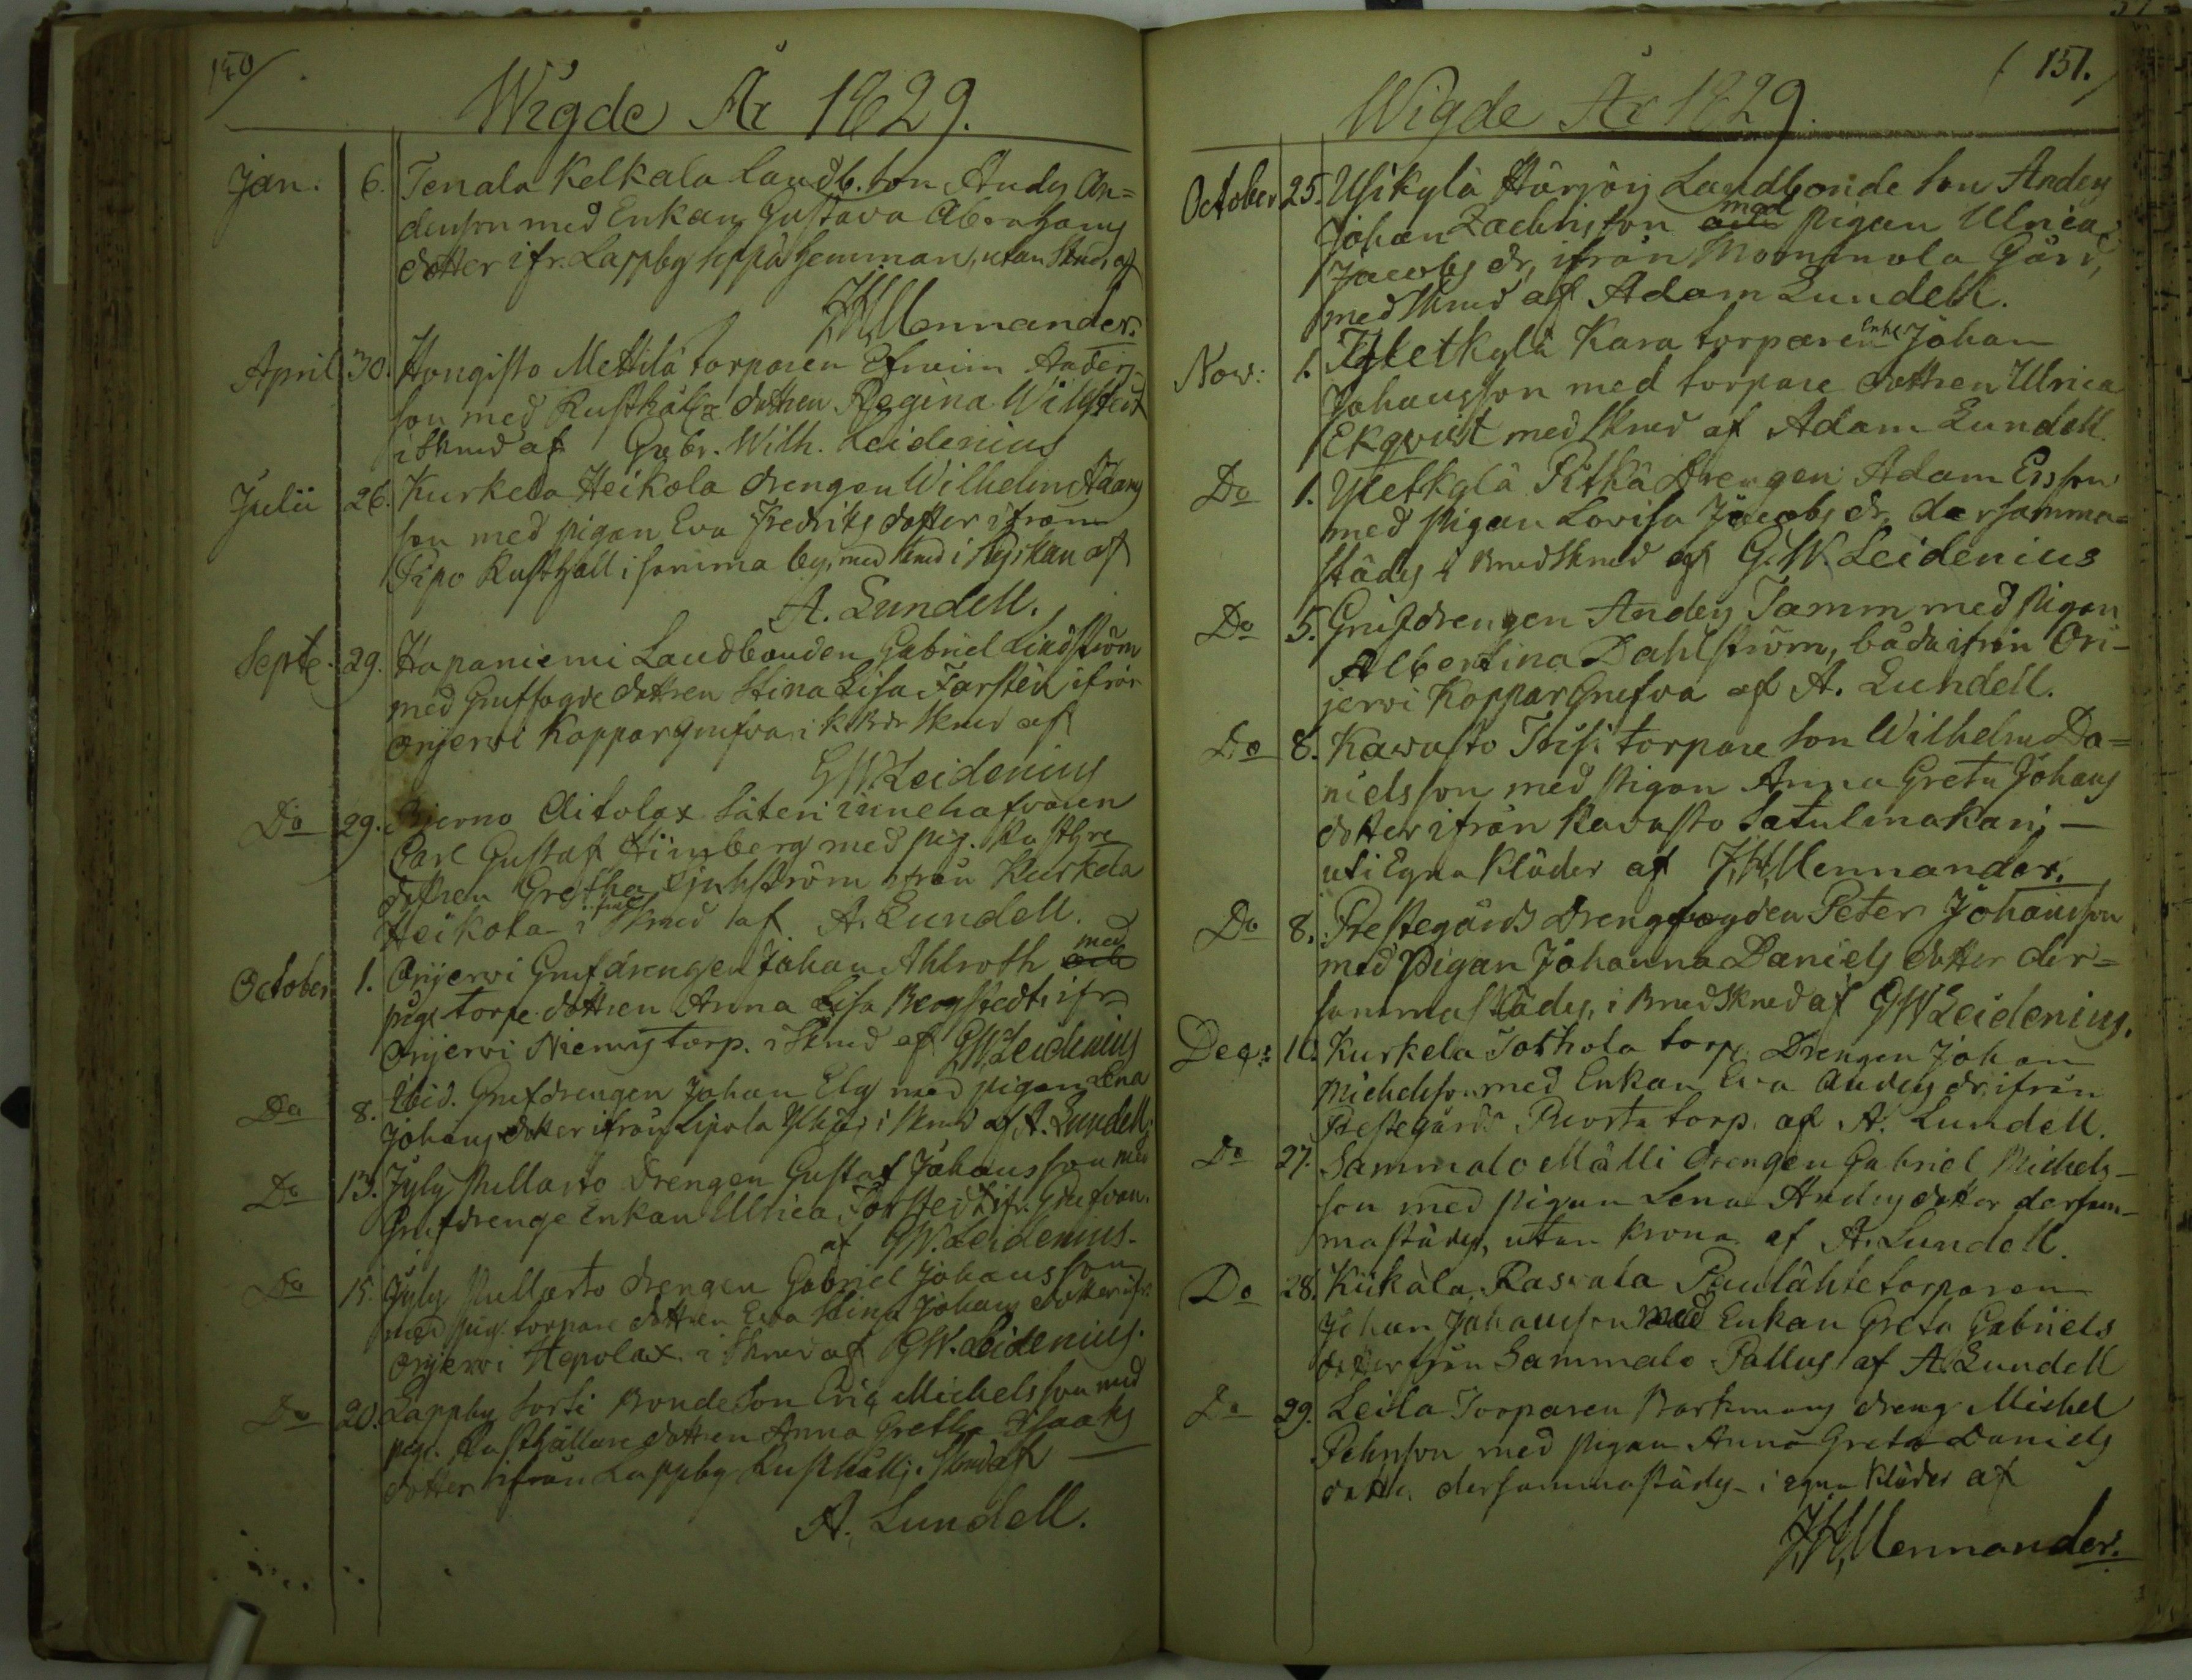 Wigde År 1829.
Jan. 6. Tenala Kelkala Landb. son Anders An=
dersson med Enkan Gustava Abrahams
dotter ifr. Lappby Seppä hemman, utan skrud, af
J.H. Mennander.
April 30. Hongisto Mettilä torparen Efraim Anders-
son med Rusthåll dottren Regina Wilstedt
i skrud af Gabr. Wilh. Leidenius
Julii 26. Kurkela Heikola drengen Wilhelm Adams
son med pigan Eva Fredriks dotter ifrån
Pipo Rusthåll i samma by, med skrud i Kyrkan af
A. Lundell.
Septe. 29. Hapaniemi Landbonden Gabriel Lindström
med Gruffogde dottren Stina Lisa Farstén ifrån
Orijerwi Koppargrufva i skrud af
G.W. Leidenius
Do 29. Bjerno Aitolax Säteri innehafvaren
Carl Gustaf Himberg med pig. Rusth.re
dottren Gretha Sjuhström ifrån Kurkela
Heikola i full skrud af A. Lundell.
October 1. Orijerwi Grufdrengen Johan Ahlroth och med
pig. torpe. dottren Anna Lisa Bergstedt ifr.
Orijerwi Niemis torp. i skrud af GW. Leidenius
Do 8. Ibid. Grufdrengen Johan Elg med pigan Lena
Johans dotter ifrån Lipola i skrud af A. Lundell.
Do 13. Jyly Mullasto Drengen Gustaf Johansson med
Grufdrenge Enkan Ulrica Forstedt ifr. Grufvan.
af GW. Leidenius.
Do 15. Jyly Mullasto drengen Gabriel Johansson
med pig. torpare dottren Eva Stina Johans dotter ifr.
Orijerwi Hepolax i skrud af GW. Leidenius.
Do 20. Lappby Sorti Bondeson Eric Michelsson med
pig. Rusthållare dottren Anna Gretha Isaaks
dotter ifrån Lappby Rusthåll i skrud af
A. Lundell.
( 151.
Wigde År 1829.
October 25. Ylikylä Härjärj Landbonde son Anders
Johan Zachrisson och med pigan Ulrica
Jacobs dr, ifrån Mommola Gård,
med skrud af Adam Lundell.
Nov: 1. Ysletkylä Kara torparen Enkl. Johan
Johansson med torpare dottren Ulrica
Ekqvist med skrud af Adam Lundell.
Do 1. Ysletkylä Pitkä Drengen Adam Ersson
med pigan Lovisa Jacobs dr, dersamma=
städes i Brudskrud af G.W. Leidenius
Do 5. Grufdrengen Anders Tamm med pigan
Albertina Dahlström, båda ifrån Ori-
jerwi Koppar Grufva af A. Lundell.
Do 8. Kavasto Isisi torpare son Wilhelm Da=
nielsson med pigan Anna Greta Johans
dotter ifrån Kavasto Satulmakari —
uti Egna kläder af J.H. Mennander.
Do 8. Prestegårds Drengfogden Peter Johansson
med Pigan Johanna Daniels dotter der=
sammastädes, i Brudskrud af GW Leidenius.
Dec: 10. Kurkela Torkola torp. Drengen Johan
Michelsson med Enkan Eva Anders dr, ifrån
Prestegårds Puorta torp. af A. Lundell.
Do 27. Sammalo Mälli drengen Gabriel Michels-
son med pigan Lena Anders dotter dersam-
mastädes, utan Krona af A. Lundell.
Do 28. Kiikala Rasvala Paulähte torparen
Johan Johansson med Enkan Greta Gabriels
dotter från Sammalo Pallus af A. Lundell
Do 29. Leila Torparen Barkmans dreng Michel
Pehrsson med pigan Anna Greta Daniels
dotter dersammastädes i egna kläder af
J.H. Mennander.